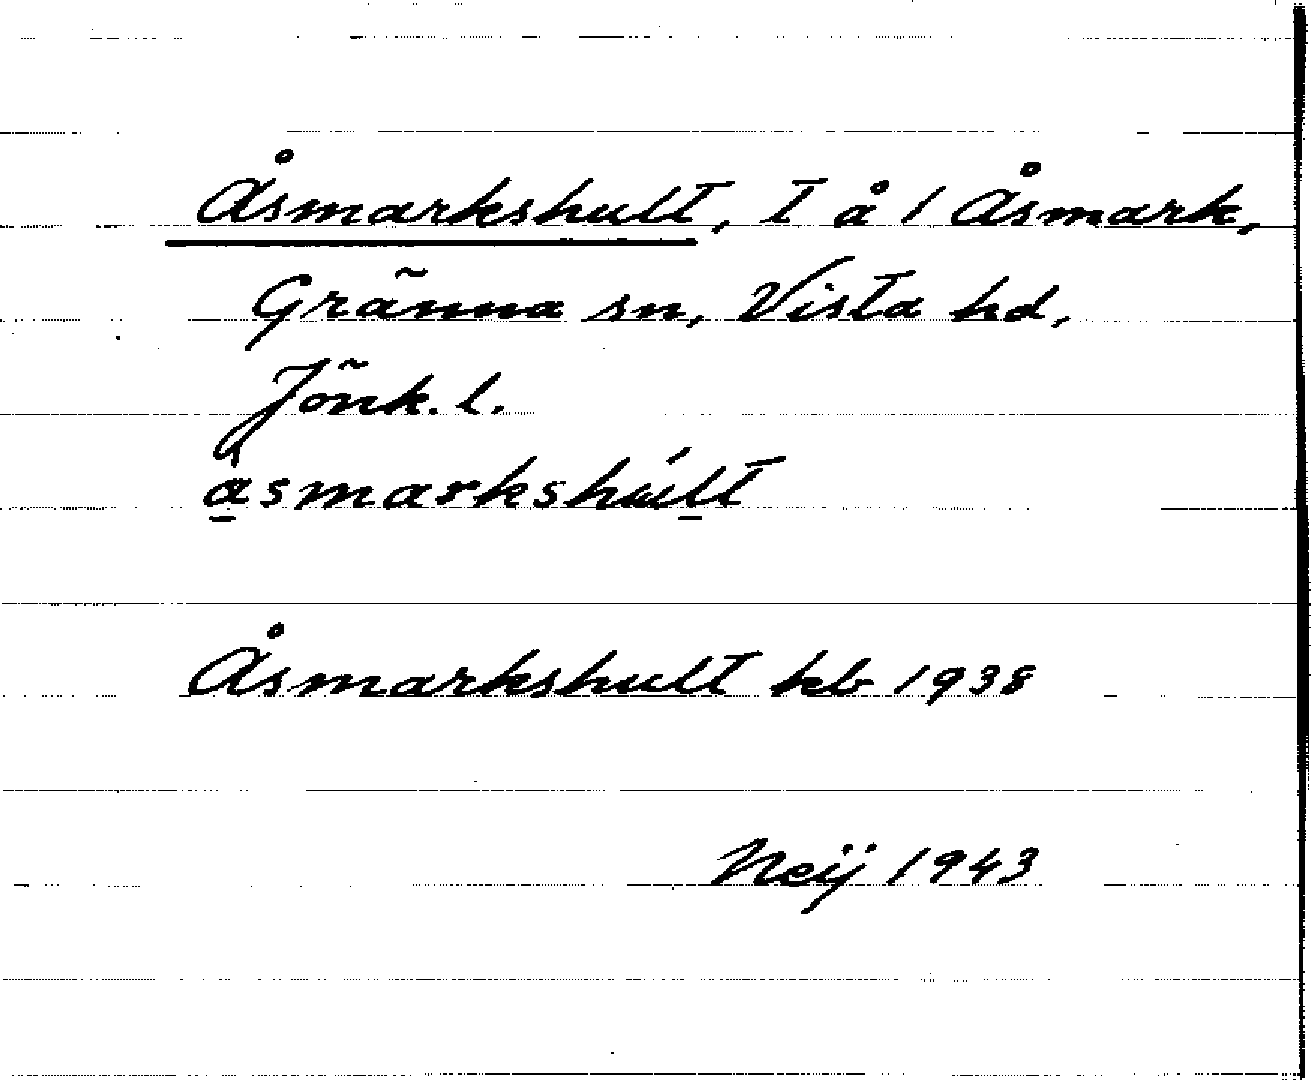 Åsmarkshult, T å 1 Åsmark,
Gränna sn, Vista hd,
Jönk. l.
åsmarkshult
Åsmarkshult kb 1938
Neij 1943